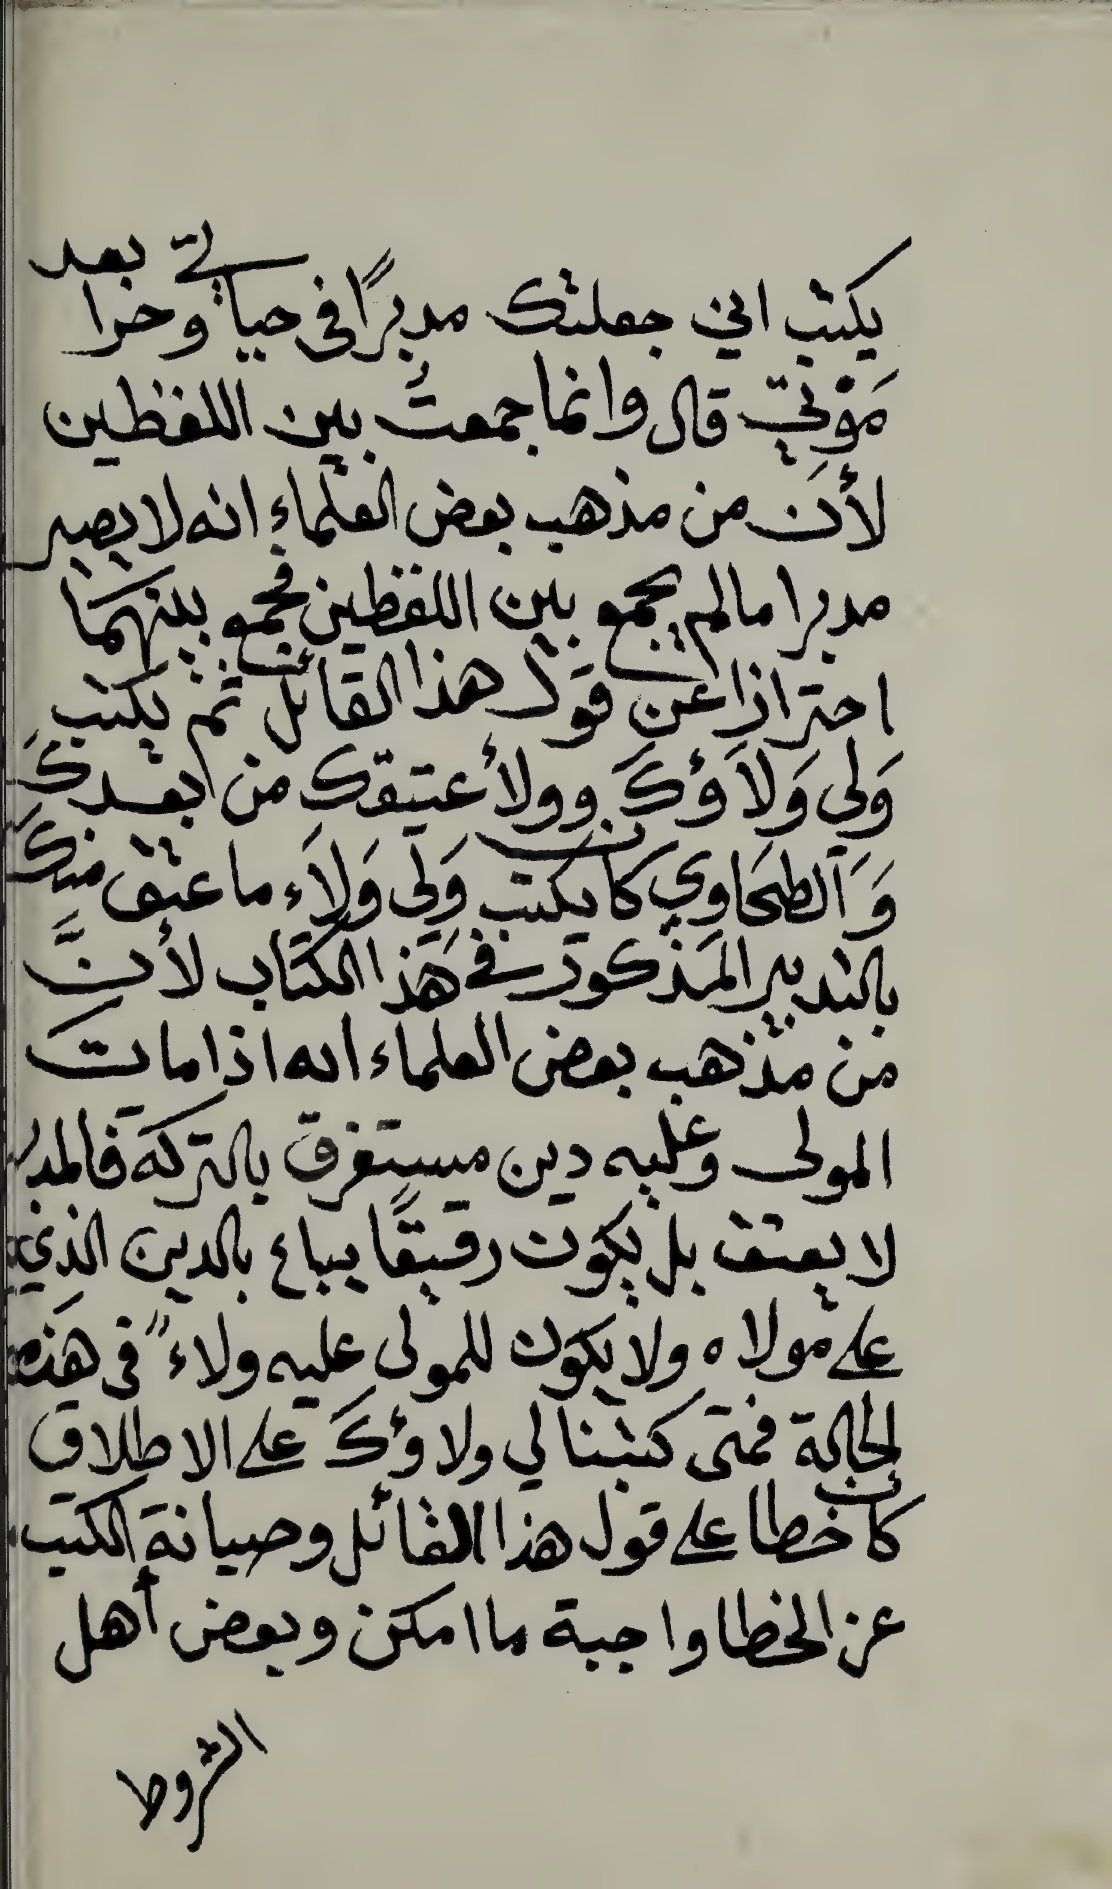 يكتب اني جعلتك مدبرًا في حياتي وحرا بعد
مَوْتيّ قال وانما جمعتُ بين اللفظين
لأن من مذهب بعض العلماء انه لا يصير
مدبرا ما لم يجمع بين اللفظين فجمع بينهما
احترازا عن قول هذا القائل ثم يكتب
وَلي وَلاَؤُكَ وولأ عتيقك من بعدكَ
وَالطحَاوي كان يكتب وَلي وَلاَء ما عتق منكَ
بالتدبير المذكور في هَذا الكتَاب لأنَّ
من مذهب بعض العلماء انه اذا ماتَ
المولى وعليه دين مستغرق بالتركة فالمدبر
لا يعتق بل يكون رقيقًا يباع بالدين الذي
على مولاه ولا يكون للمولى عليه ولاءٌ في هَذه
الحالة فمتى كتبنا لي ولاؤكَ على الاطلاق
كان خطا على قول هذا القائل وصيانة الكتب
عن الخطا واجبة ما امكن وبعض أهل
الشروط